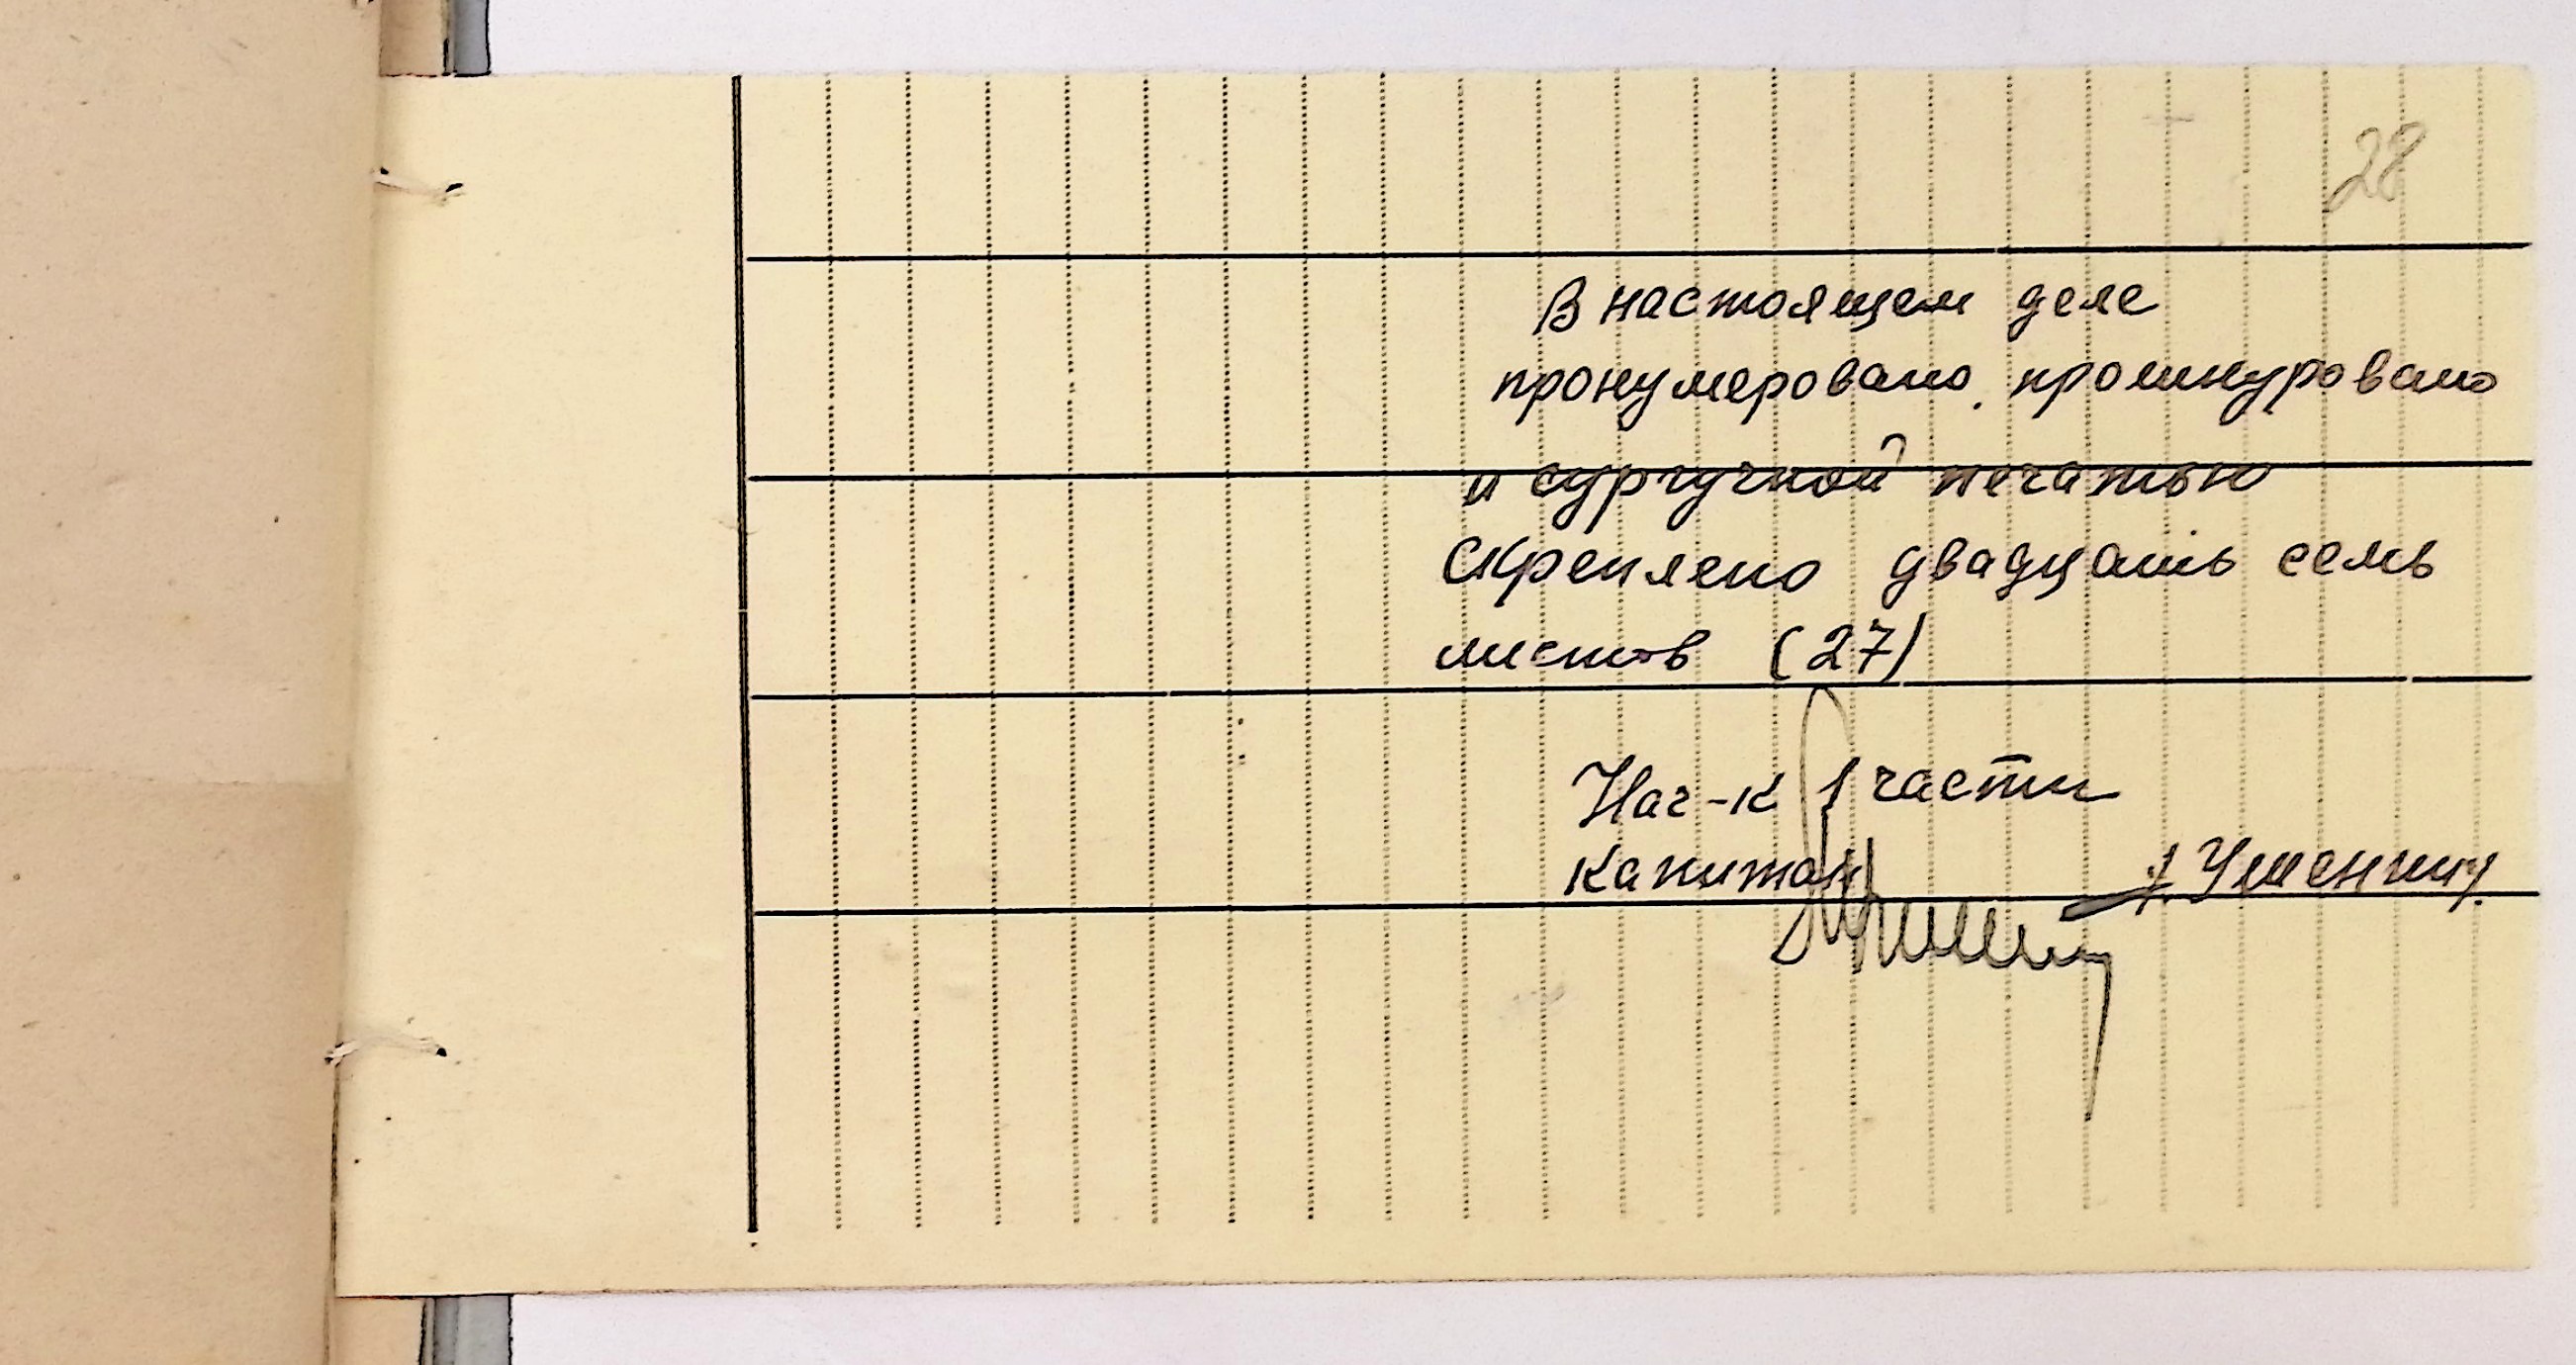 28
В настоящем деле
пронумеровано, прошнуровано
и сургучной печатью
скреплено двадцать семь
листов (27)
Нач-к 1 части
капитан